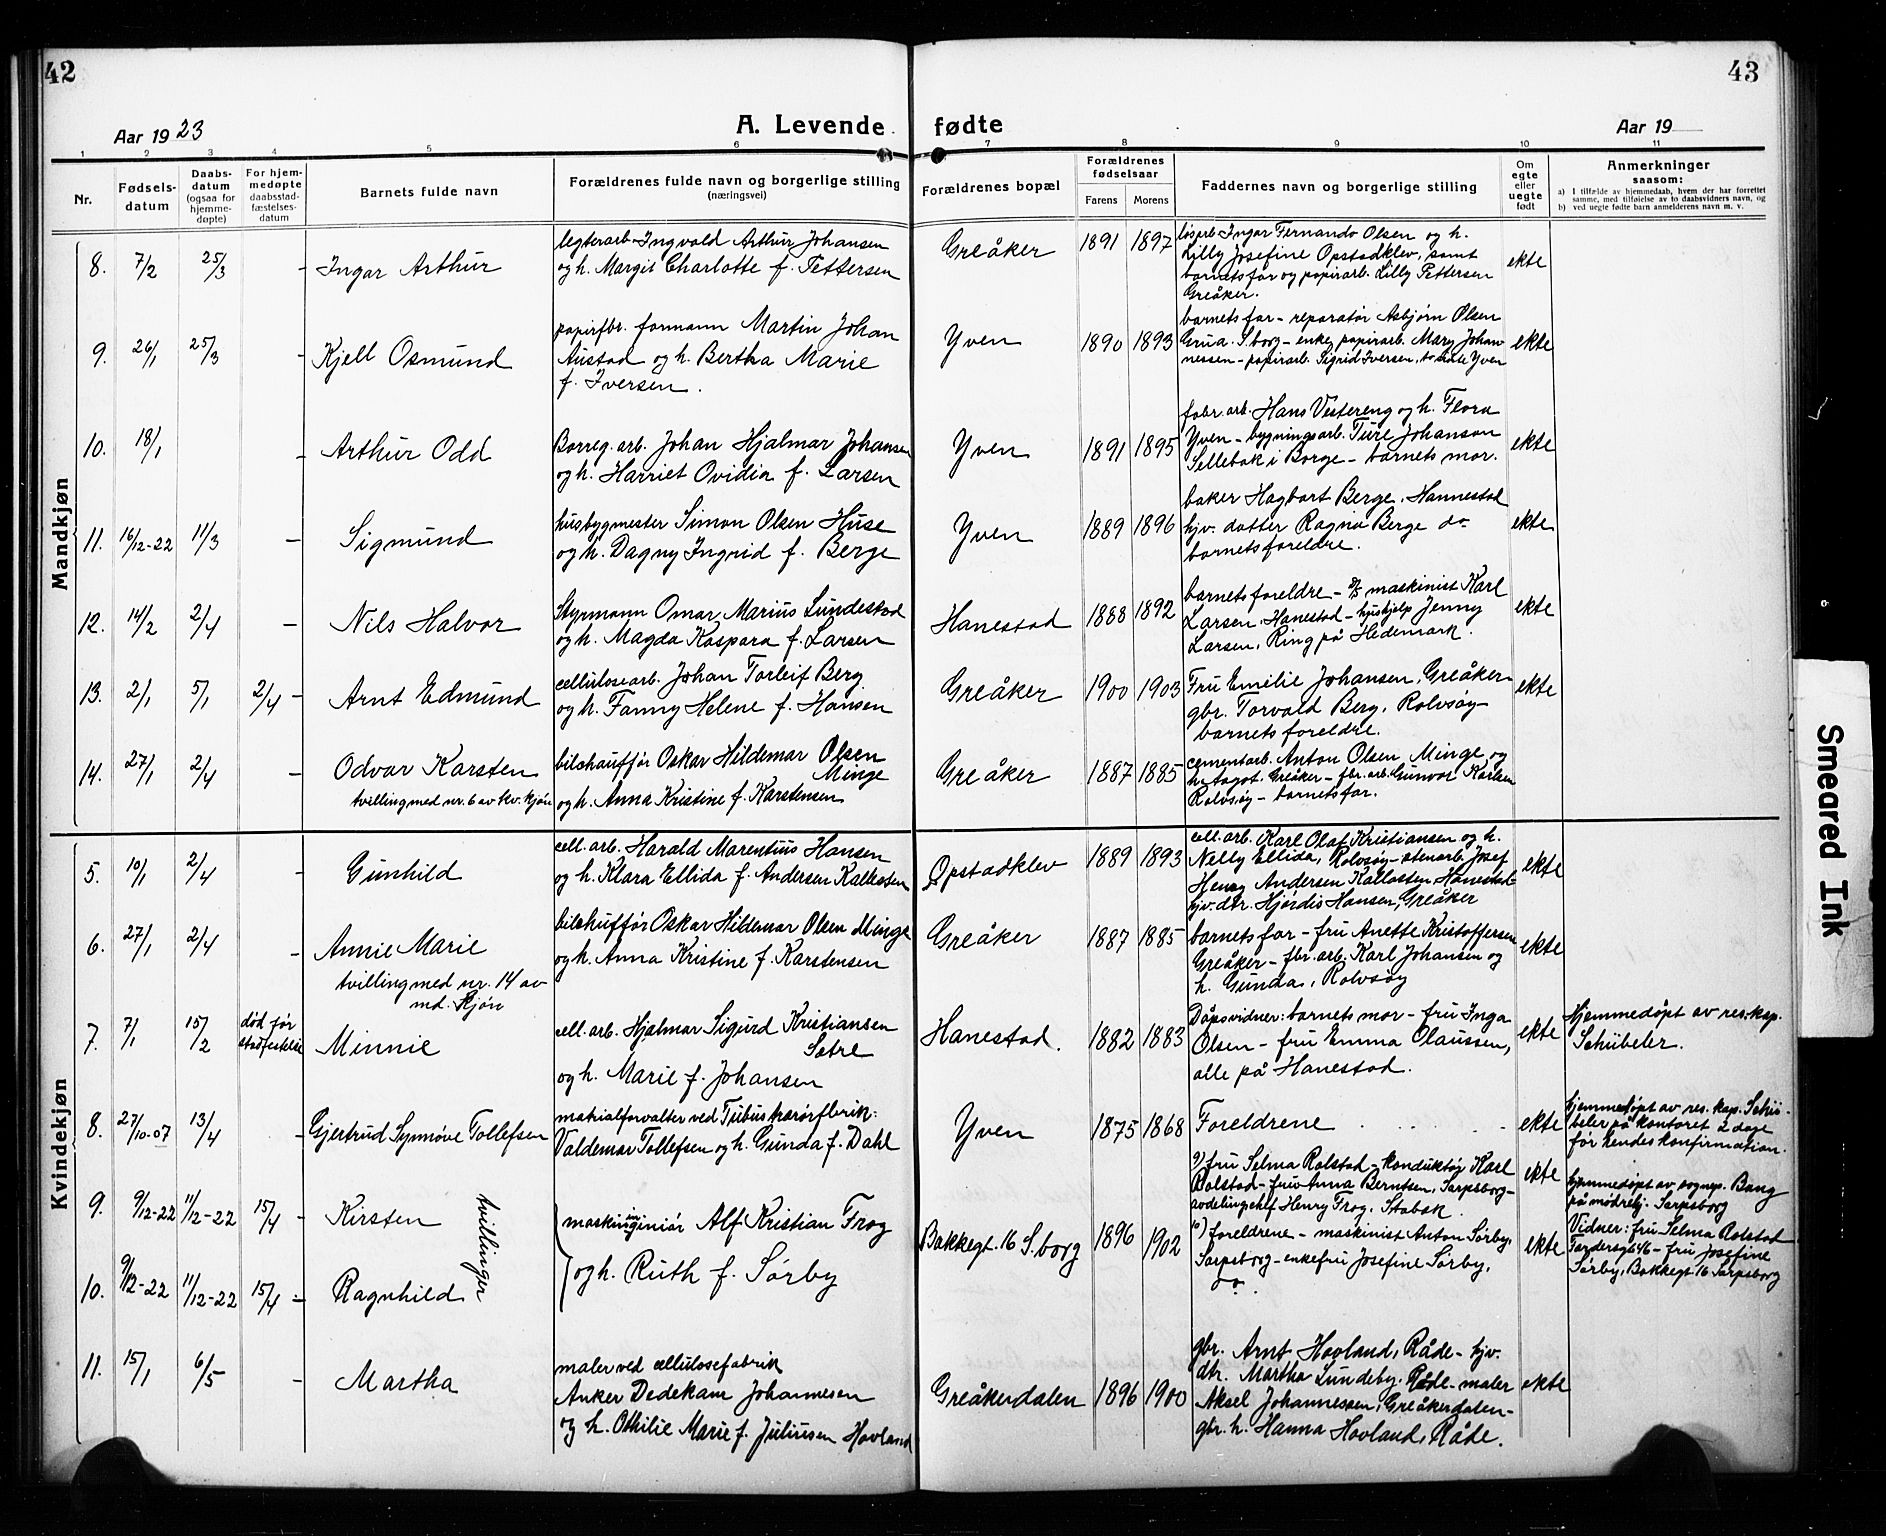 42
43
Aar 1923
A. Levende fødte
Aar 19
1 2 3 4 5 6 7 8 9 10 11
Nr.
Fødsels-
datum
Daabs-
datum
(ogsaa for
hjemme-
døpte)
For hjem-
medøpte
daabsstad-
fæstelses-
datum
Barnets fulde navn
Forældrenes fulde navn og borgerlige stilling
(næringsvei)
Forældrenes bopæl
Forældrenes
fødselsaar
Farens
Morens
Faddernes navn og borgerlige stilling
Om
egte
eller
uegte
født
Anmerkninger
saasom:
a) I tilfælde av hjemmedaab, hvem der har forrettet
samme, med tilføielse av to daabsvidners navn, og
b) ved uegte fødte barn anmelderens navn m. v.
Mandkjøn
8. 7/2 25/3 - Ingar Arthur
Ingvald Arthur Johansen
og h. Margit Charlotte f. Pettersen
Greåker 1891 1897
Ingar Fernando Olsen og h.
Lilly Josefine Opstadklev, samt
barnets far og papirarb. Lilly Pettersen
Greåker.
ekte
9. 26/1 25/3 - Kjell Osmund
papirfbr. formann Martin Johan
Austad og h. Bertha Marie
f. Iversen.
Yven 1890 1893
barnets far - reparatør Asbjørn Olsen
Grua. S.borg - enke papirarb. Mary Johan-
nessen - papirarb. Sigrid Iversen, Yven
ekte
10. 18/1 - Arthur Odd
Borreg. arb. Johan Hjalmar Johansen
og h. Harriet Ovidia f. Larsen
Yven 1891 1895
fabr. arb. Hans Vestereng og h. Flora
Yven - bygningsarb. Ture Johanson
Sellebak i Borge - barnets mor.
ekte
11. 16/12-22 11/3 - Sigmund
husbygmester Simon Olsen Huse
og h. Dagny Ingrid f. Berge
Yven 1889 1896
baker Hagbart Berge, Hannestad
hjv. datter Ragna Berge do
barnets foreldre.
ekte
12. 14/2 2/4 - Nils Halvor
Styrmann Omar Marius Lundestad
og h. Magda Kaspara f. Larsen
Hanestad 1888 1892
barnets foreldre - maskinist Karl
Larsen, Hanestad - hushjelp Jenny
Larsen, Ring på Hedemark.
ekte
13. 2/1 5/1 2/4 - Arnt Edmund
cellulosearb. Johan Torleif Berg
og h. Fanny Helene f. Hansen
Greåker 1900 1903
Fru Emelie Johansen, Greåker
gbr. Torvald Berg, Rolvsøy
barnets foreldre.
ekte
14. 27/1 2/4 - Odvar Karsten
tvilling med nr. 6 av kv. kjøn
bilshauffør Oskar Hildemar Olsen
Minge
og h. Anna Kristine f. Karstensen
Greåker 1887 1885
cementarb. Anton Olsen Minge og
h. Aagot. Greåker - fbr. arb. Gunvor Karlsen
Rolvsøy - barnets far.
Kvindekjøn
5. 10/1 2/4 - Gunhild
cell. arb. Harald Marentius Hansen
og h. Klara Ellida f. Andersen Kallesten
Opstadklev 1889 1893
cell. arb. Karl Olaf Kristiansen og h.
Nelly Ellida, Rolvsøy - stenarb. Josef
Henry Andersen Kallesten Hanestad
hjv. dtr. Hjørdis Hansen, Greåker
ekte
6. 27/1 2/4 - Annie Marie
tvilling med nr. 14 av
md. kjøn
bilshuffør Oskar Hildemar Olsen Minge
og h. Anna Kristine f. Karstensen
Greåker 1887 1885
barnets far - fru Anette Kristoffersen
Greåker - fbr. arb. Karl Johansen og
h. Gunda, Rolvsøy
ekte
7. 7/1 15/2 død før
stadfestelse
Minnie
cell. arb. Hjalmar Sigurd Kristiansen
Sætre
og h. Marie f. Johansen
Hanestad. 1882 1883
Dåpsvidner: barnets mor - fru Inga
Olsen - fru Emma Olaussen,
alle på Hanestad.
ekte
Hjemmedøpt av res. kap.
Schübeler.
8. 27/10-07 13/4 - Gjertrud Synnøve Tollefsen
matrialforvalter ved
Valdemar Tollefsen og h. Gunda f. Dahl
Yven 1875 1868
Foreldrene
ekte
hjemmedøpt av res. kap. Schü-
beler på kontoret 2 dage
før hendes konfirmation.
9. 9/12-22 11/12-22 15/4 - Kirsten
tvillinger
maskiningeniør Alf Kristian Frog
og h. Ruth f. Sørby
Bakkegt. 16 S.borg 1896 1902
9) fru Selma Rolstad - konduktør Karl
Rolstad - fru Anna Berntsen, Sarpsborg -
avdelingschef Henry Frog, Stabæk.
ekte
hjemmedøpt av sognep. Bang
på mødrehj. Sarpsborg
Vidner: fru Selma Rolstad
- fru Josefine
Sørby, Bakkegt 16 Sarpsborg
10. 9/12-22 11/12-22 15/4 - Ragnhild
10) foreldrene - maskinist Anton Sørby,
Sarpsborg - enkefru Josefine Sørby,
do.
ekte
11. 15/1 6/5 - Martha
maler ved cellulosefabrik
Anker Dedekam Johannesen
og h. Othilie Marie f. Juliusen Hovland
Greåkerdalen 1896 1900
gbr. Arnt Hovland, Råde - hjv.
dtr. Martha Lundeby, Råde - maler
Aksel Johannessen, Greåkerdalen -
gbr. h. Hanna Hovland, Råde.
ekte
Smeared Ink